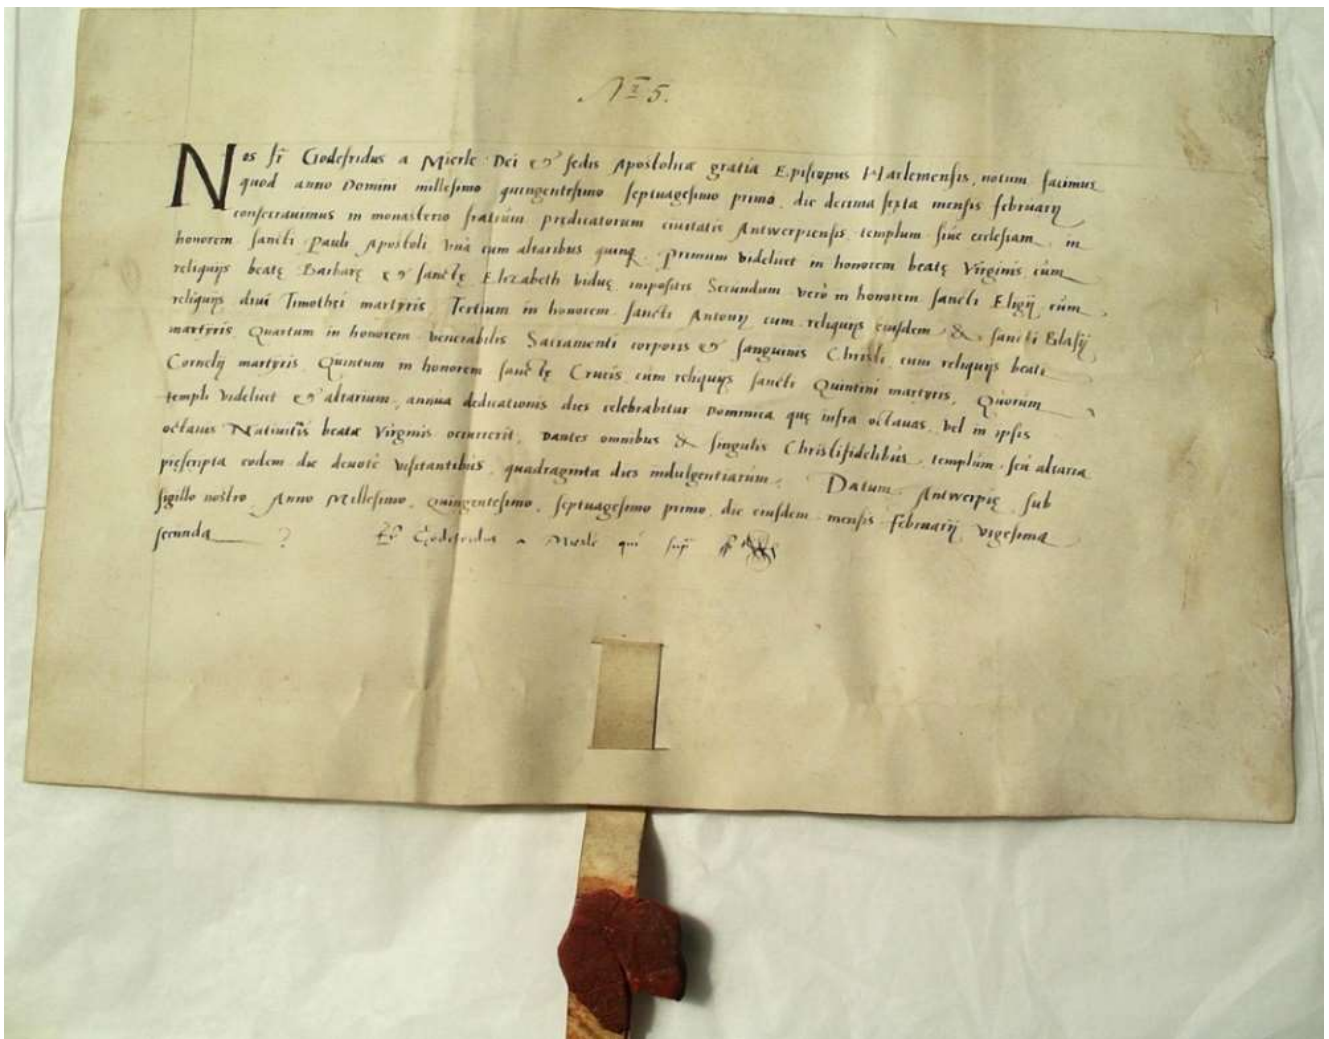 Nro 5.
Nos fr Godefridus a Mierle Dei et sedis Apostolicæ gratia Episcopus Harlemensis, notum facimus
quod anno Domini millesimo quingentesimo septuagesimo primo, die decima sexta mensis februarij
consecrauimus in monasterio fratrum prędicatorum ciuitatis Antwerpiensis templum siue ecclesiam, in
honorem sancti Pauli Apostoli vnà cum altaribus quinq. primum videlicet in honorem beatę Virginis cum
reliquijs beatę Barbarę et sanctę Elizabeth viduę impositis Secundum verò in honorem sancti Eligij cum
reliquijs diui Timothei martyris, Tertium in honorem sancti Antonij cum reliquijs eiusdem & sancti Blasij
martyris Quartum in honorem venerabilis Sacramenti corporis et sanguinis Christi cum reliquijs beati
Cornelij martyris Quintum in honorem sanctę Crucis cum reliquijs sancti Quintini martyris, Quorum
templi videlicet et altarium, annua dedicationis dies celebrabitur Dominica quę infra octauas, vel in ipsis
octauis Natiuitis beatæ Virginis occurrerit, Dantes omnibus & singulis Christifidelibus, templum seu altaria
prescripta eodem die deuotè visitantibus, quadraginta dies indulgentiarum, Datum Antwerpię sub
sigillo nostro, Anno Millesimo, quingentesimo, septuagesimo primo, die eiusdem mensis februarij vigesima
secunda fr Godefridus a Mierle qui sup